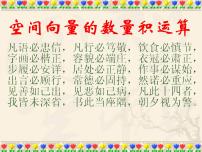 空间向量的数量积运算
凡语必忠信，凡行必笃敬，饮食必慎节，
字画必楷正，容貌必端庄，衣冠必肃正，
步履必安详，居处必正静，作事必谋始，
出言必顾行，常德必固持，然诺必重应，
见善如己出，见恶如己病，凡此十四者，
我皆未深省，书此当座隅，朝夕视为警。